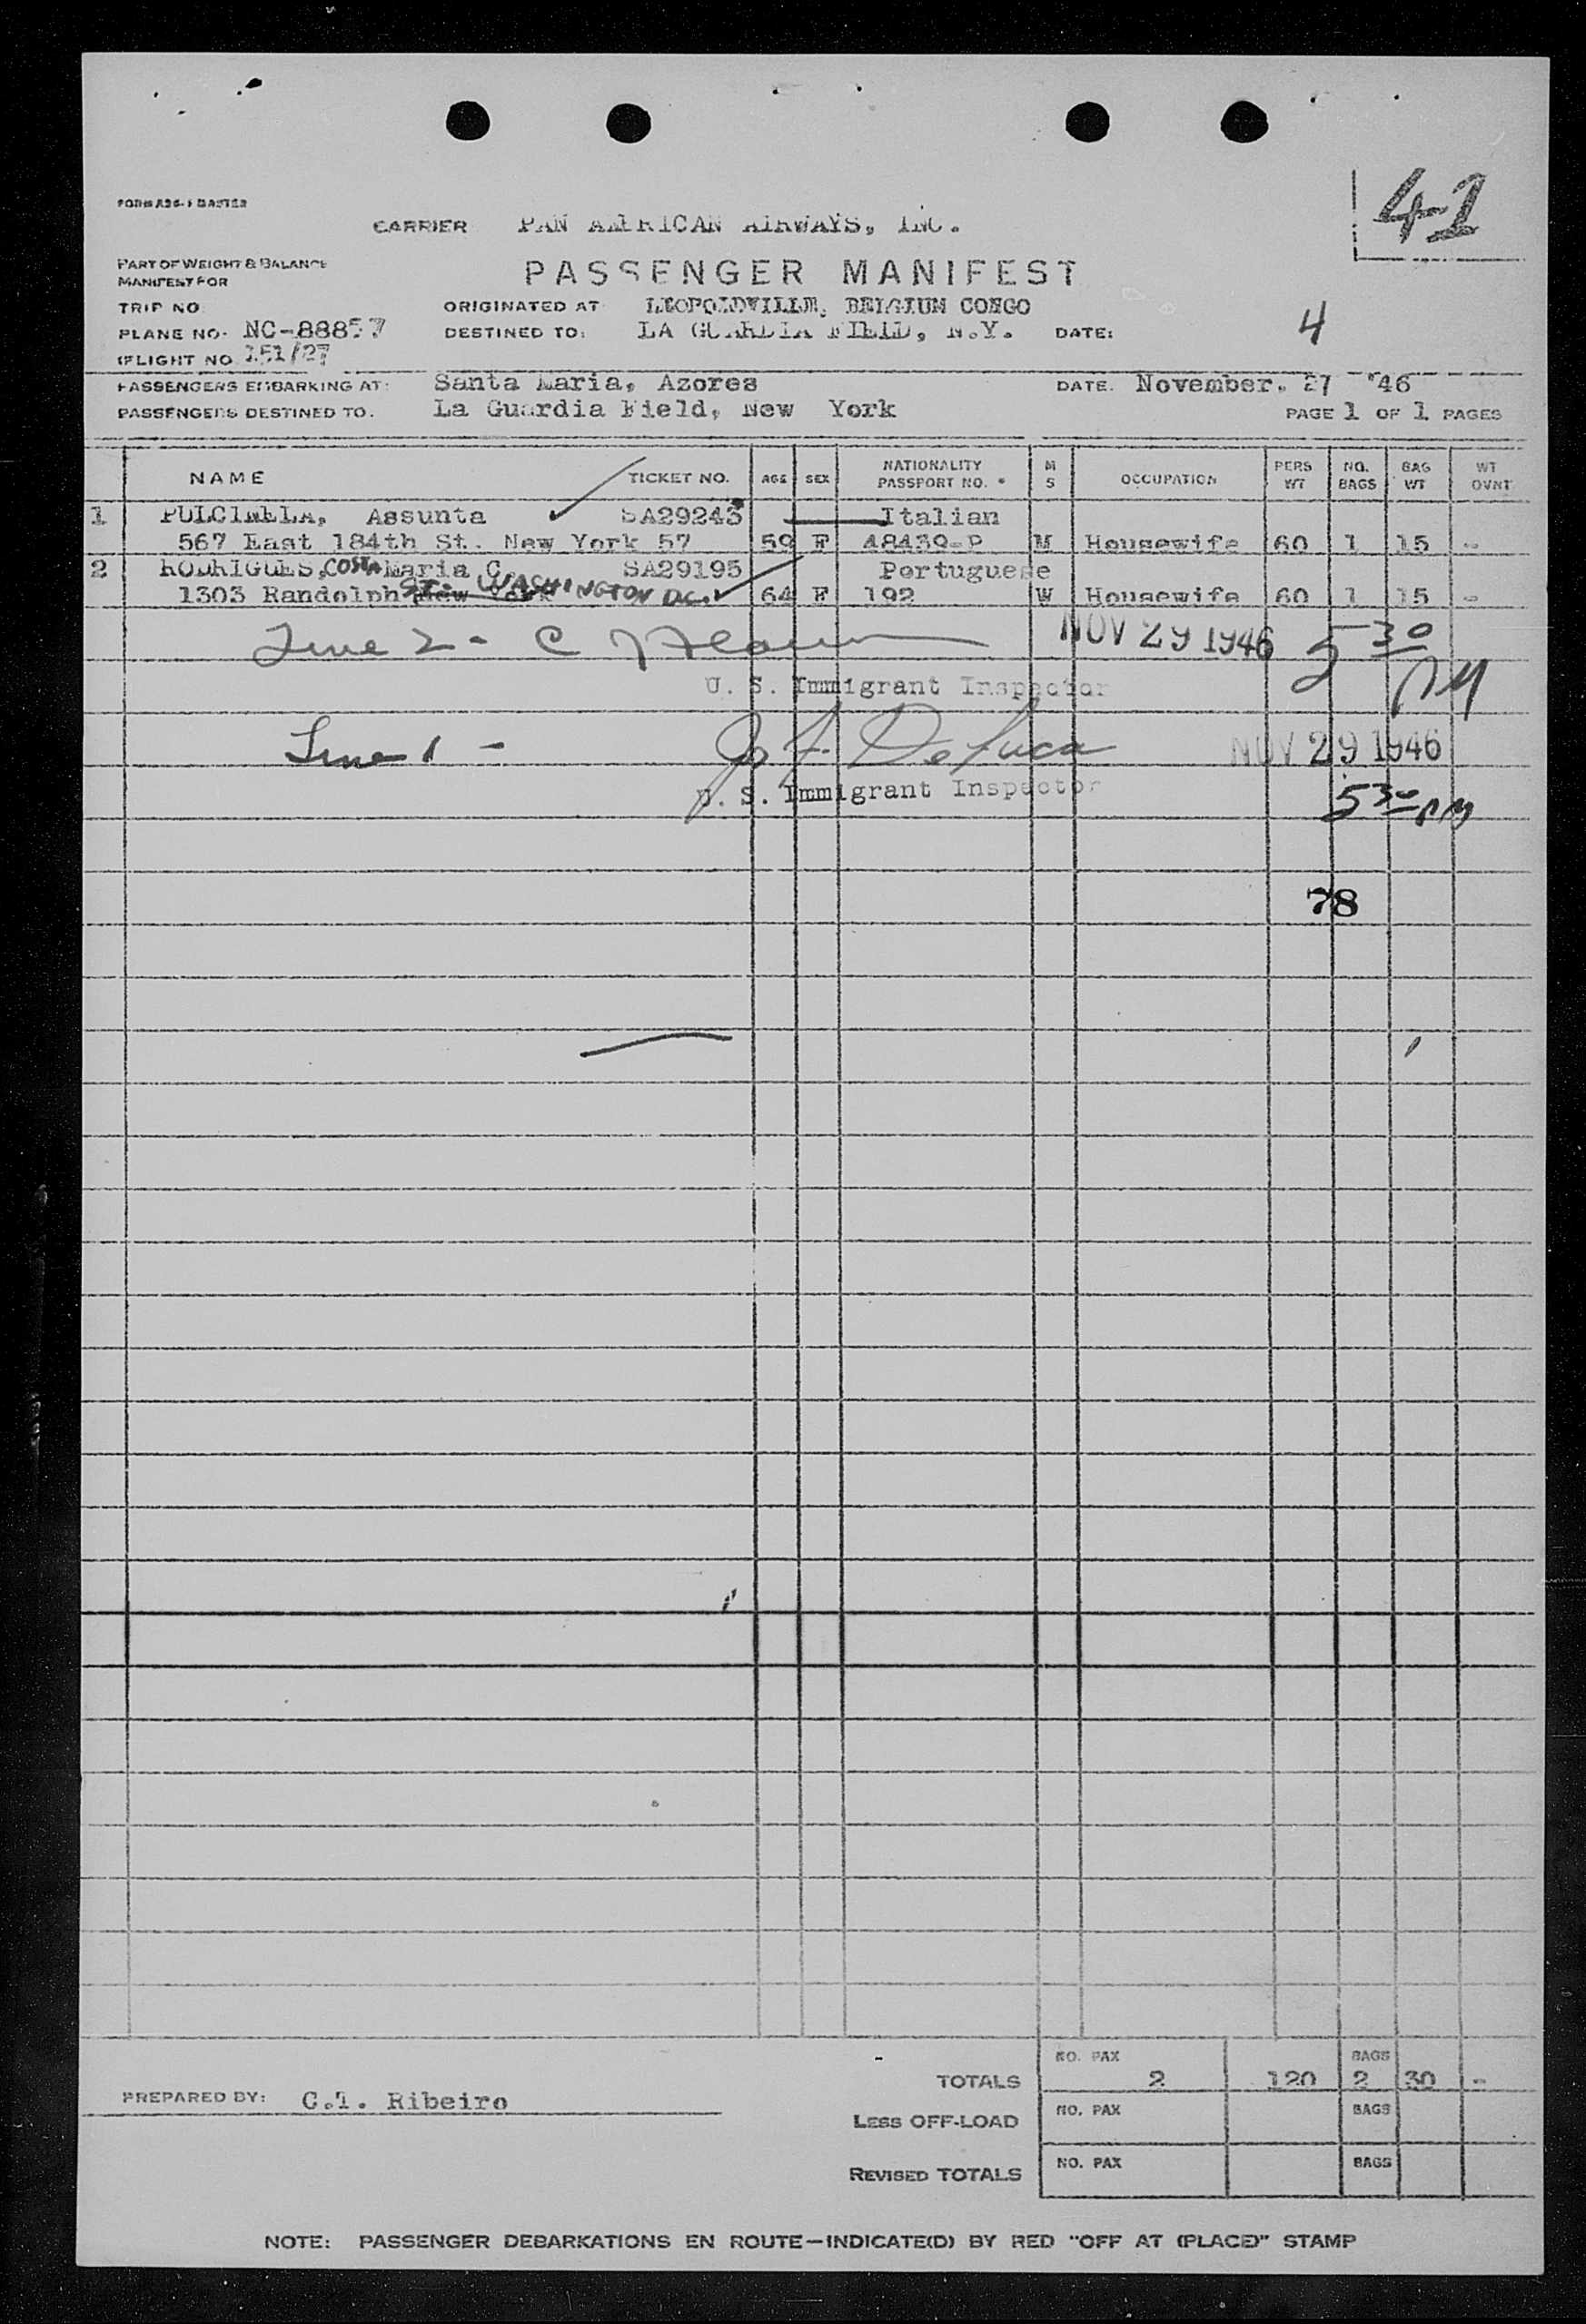 41
CARRIER PAN AMERICAN AIRWAYS, INC.
PART OF WEIGHT & BALANCE
MANIFEST FOR
PASSENGER MANIFEST
TRIP NO
ORIGINATED AT LEOPOLDVILLE, BELGIUM CONGO
4
PLANE NO. NC-88857
DESTINED TO: LA GUARDIA FIELD, N.Y. DATE:
FLIGHT NO 151/27
PASSENGERS EMBARKING AT: Santa Maria, Azores DATE. November. 27 '46
PASSENGERS DESTINED TO. La Guardia Field, New York PAGE 1 OF 1 PAGES
NAME TICKET NO. AGE SEX NATIONALITY PASSPORT NO. * M S OCCUPATION PERS WT NO. BAGS BAG WT WT OVNT
1 PULCINELLA, Assunta SA29243 Italian
567 East 184th St. New York 57 59 F 48439-P M Housewife 60 1 15 -
2 RODRIGUES, COSTA Maria C. SA29195 Portuguese
1303 Randolph ST. WASHINGTON D.C. New York 64 F 192 W Housewife 60 1 15 -
Line 2 - C NOV 29 1946 5 30 PM
U. S. Immigrant Inspector
Line 1 - De Luca NOV 29 1946
U. S. Immigrant Inspector 5 30 PM
78
NO. PAX BAGS
TOTALS 2 120 2 30 -
PREPARED BY: C.T. Ribeiro
LESS OFF-LOAD NO. PAX BAGS
REVISED TOTALS NO. PAX BAGS
NOTE: PASSENGER DEBARKATIONS EN ROUTE—INDICATE(D) BY RED "OFF AT (PLACE)" STAMP